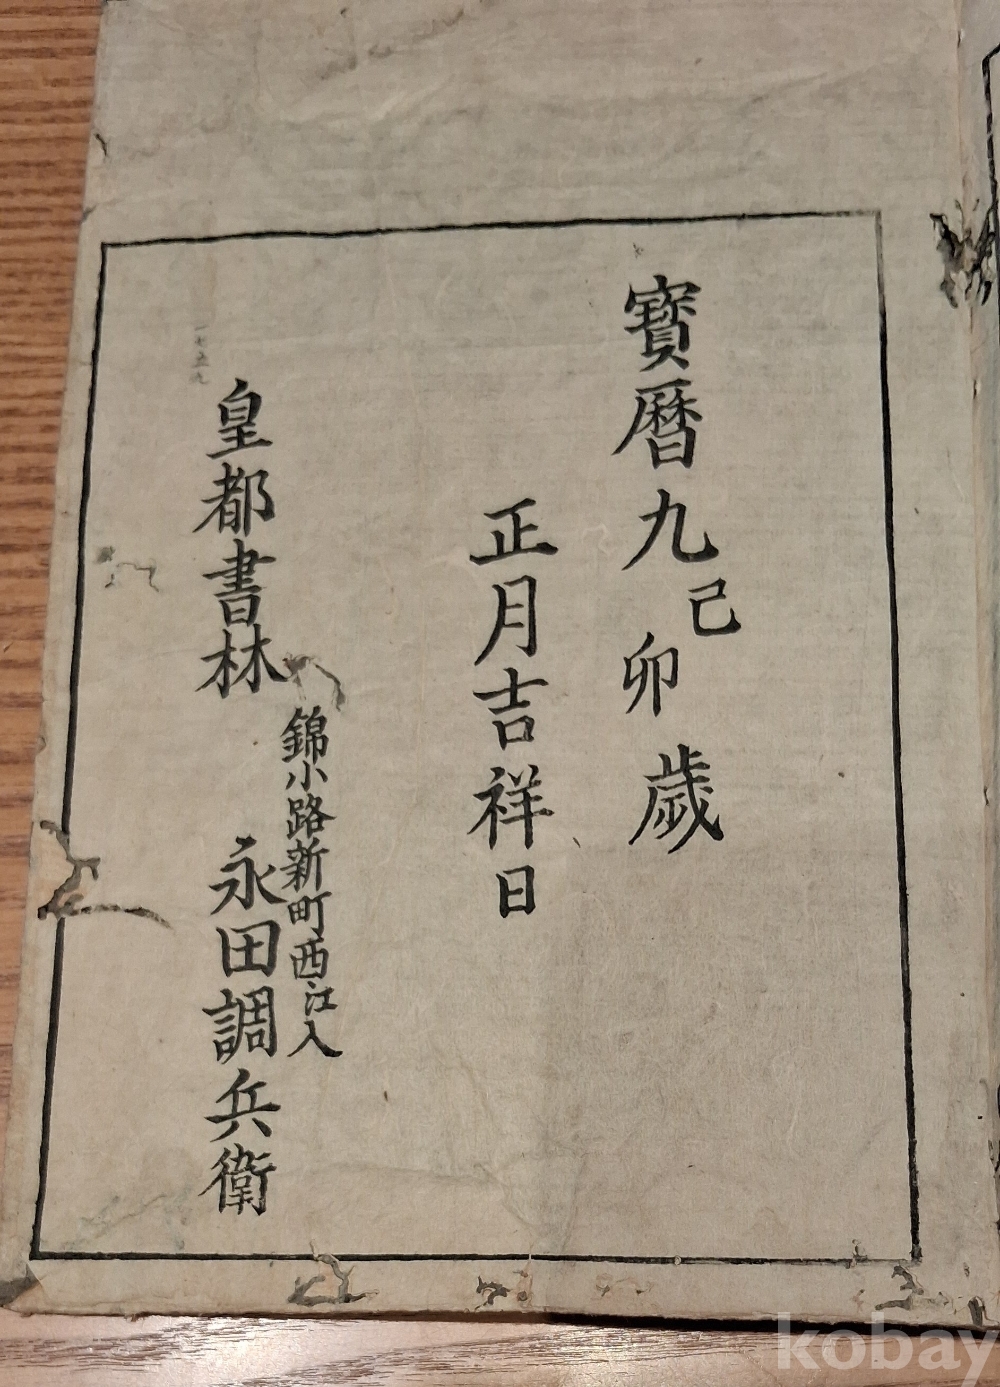 寶暦九己卯歲
正月吉祥日
錦小路新町西江入
皇都書林 永田調兵衛
一七五九
kobay